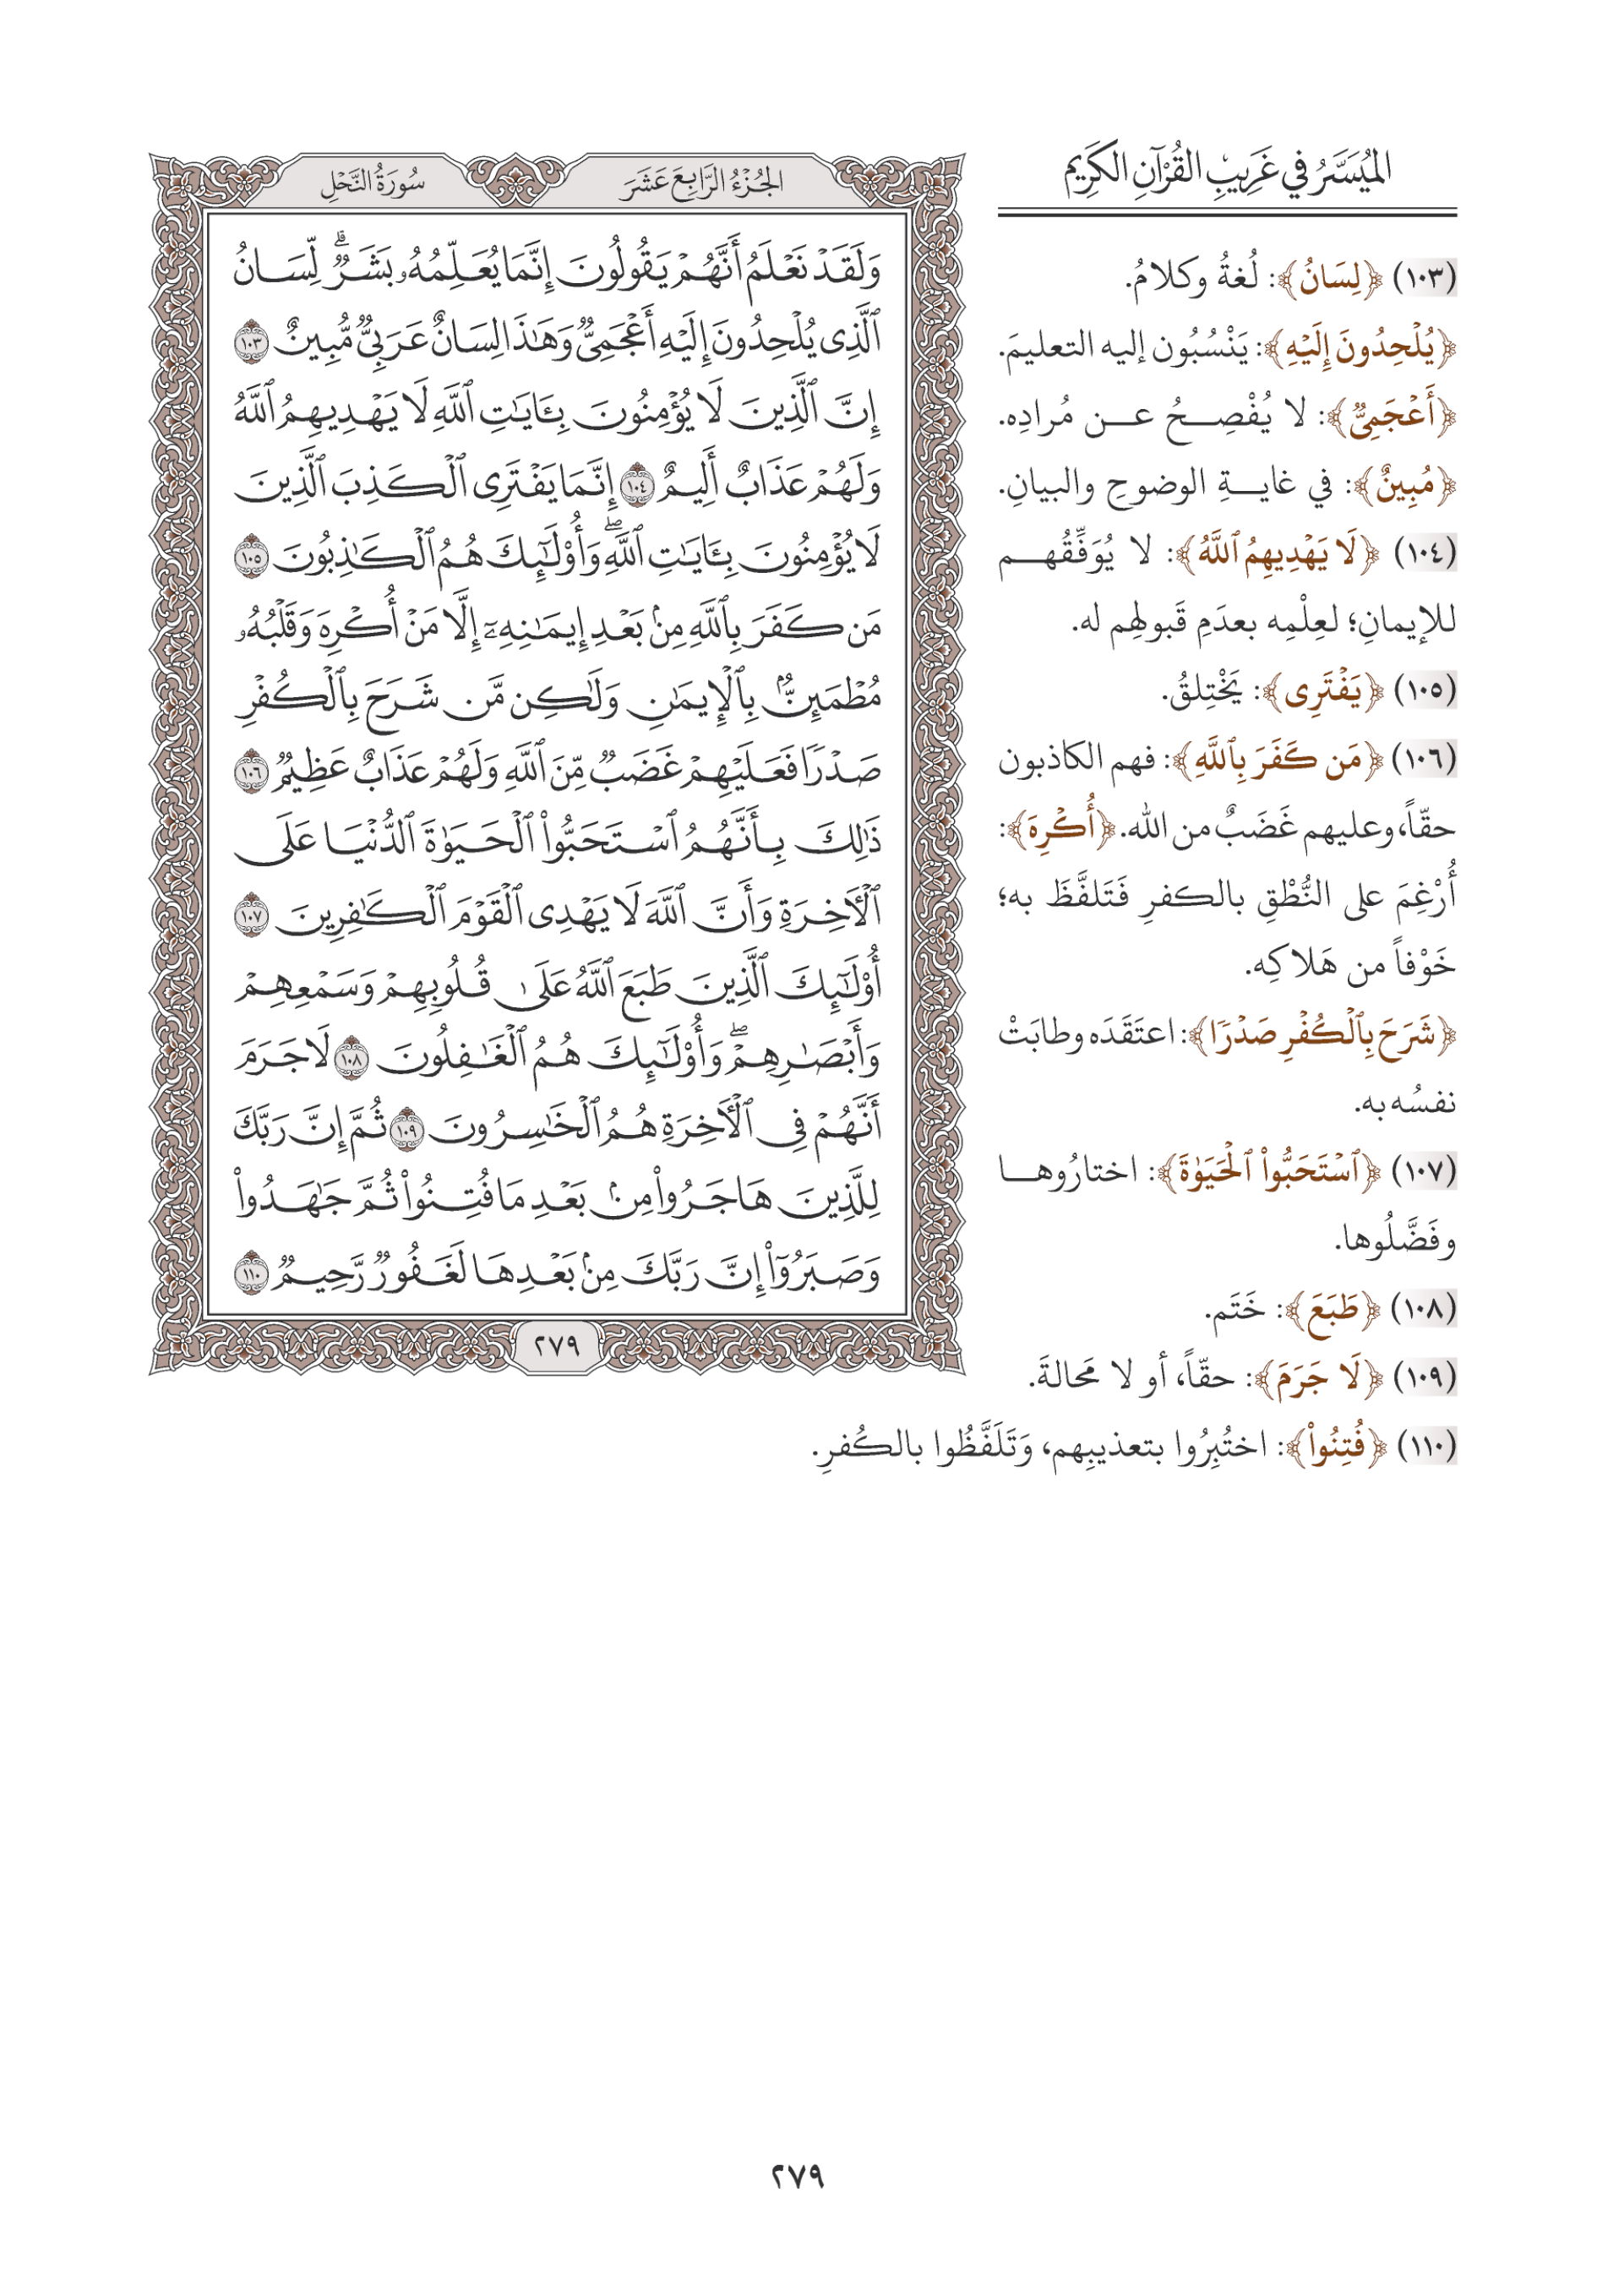 الميُسَّرُ في غَرِيبِ القُرْآنِ الكَرِيم
(١٠٣) ﴿لِسَانُ﴾: لُغةُ وكلامُ.
﴿يُلْحِدُونَ إِلَيْهِ﴾: يَنْسُبُون إليه التعليمَ.
﴿أَعْجَمِىٌّ﴾: لا يُفْصِحُ عن مُرادِه.
﴿مُبِينٌ﴾: في غايةِ الوضوحِ والبيانِ.
(١٠٤) ﴿لَا يَهْدِيهِمُ ٱللَّهُ﴾: لا يُوَفِّقُهم
للإيمانِ؛ لعِلْمِه بعدَمِ قَبولهِم له.
(١٠٥) ﴿يَفْتَرِى﴾: يَخْتِلقُ.
(١٠٦) ﴿مَن كَفَرَ بِٱللَّهِ﴾: فهم الكاذبون
حقّاً، وعليهم غَضَبٌ من الله. ﴿أُكْرِهَ﴾:
أُرْغِمَ على النُّطْقِ بالكفرِ فَتَلفَّظَ به؛
خَوْفاً من هَلاكِه.
﴿شَرَحَ بِٱلْكُفْرِ صَدْرًا﴾: اعتَقَدَه وطابَتْ
نفسُه به.
(١٠٧) ﴿ٱسْتَحَبُّوا۟ ٱلْحَيَوٰةَ﴾: اختارُوها
وفَضَّلُوها.
(١٠٨) ﴿طَبَعَ﴾: خَتَم.
(١٠٩) ﴿لَا جَرَمَ﴾: حقّاً، أو لا مَحالةَ.
(١١٠) ﴿فُتِنُوا۟﴾: اختُبِرُوا بتعذيبِهم، وَتَلَفَّظُوا بالكُفرِ.
الجُزْءُ الرَّابِعَ عَشَرَ سُورَةُ النَّحْلِ
وَلَقَدْ نَعْلَمُ أَنَّهُمْ يَقُولُونَ إِنَّمَا يُعَلِّمُهُۥ بَشَرٌ ۗ لِّسَانُ
ٱلَّذِى يُلْحِدُونَ إِلَيْهِ أَعْجَمِىٌّ وَهَٰذَا لِسَانٌ عَرَبِىٌّ مُّبِينٌ ١٠٣
إِنَّ ٱلَّذِينَ لَا يُؤْمِنُونَ بِـَٔايَٰتِ ٱللَّهِ لَا يَهْدِيهِمُ ٱللَّهُ
وَلَهُمْ عَذَابٌ أَلِيمٌ ١٠٤ إِنَّمَا يَفْتَرِى ٱلْكَذِبَ ٱلَّذِينَ
لَا يُؤْمِنُونَ بِـَٔايَٰتِ ٱللَّهِ ۖ وَأُو۟لَٰٓئِكَ هُمُ ٱلْكَٰذِبُونَ ١٠٥
مَن كَفَرَ بِٱللَّهِ مِنۢ بَعْدِ إِيمَٰنِهِۦٓ إِلَّا مَنْ أُكْرِهَ وَقَلْبُهُۥ
مُطْمَئِنٌّۢ بِٱلْإِيمَٰنِ وَلَٰكِن مَّن شَرَحَ بِٱلْكُفْرِ
صَدْرًا فَعَلَيْهِمْ غَضَبٌ مِّنَ ٱللَّهِ وَلَهُمْ عَذَابٌ عَظِيمٌ ١٠٦
ذَٰلِكَ بِأَنَّهُمُ ٱسْتَحَبُّوا۟ ٱلْحَيَوٰةَ ٱلدُّنْيَا عَلَى
ٱلْـَٔاخِرَةِ وَأَنَّ ٱللَّهَ لَا يَهْدِى ٱلْقَوْمَ ٱلْكَٰفِرِينَ ١٠٧
أُو۟لَٰٓئِكَ ٱلَّذِينَ طَبَعَ ٱللَّهُ عَلَىٰ قُلُوبِهِمْ وَسَمْعِهِمْ
وَأَبْصَٰرِهِمْ ۖ وَأُو۟لَٰٓئِكَ هُمُ ٱلْغَٰفِلُونَ ١٠٨ لَا جَرَمَ
أَنَّهُمْ فِى ٱلْـَٔاخِرَةِ هُمُ ٱلْخَٰسِرُونَ ١٠٩ ثُمَّ إِنَّ رَبَّكَ
لِلَّذِينَ هَاجَرُوا۟ مِنۢ بَعْدِ مَا فُتِنُوا۟ ثُمَّ جَٰهَدُوا۟
وَصَبَرُوٓا۟ إِنَّ رَبَّكَ مِنۢ بَعْدِهَا لَغَفُورٌ رَّحِيمٌ ١١٠
٢٧٩
٢٧٩